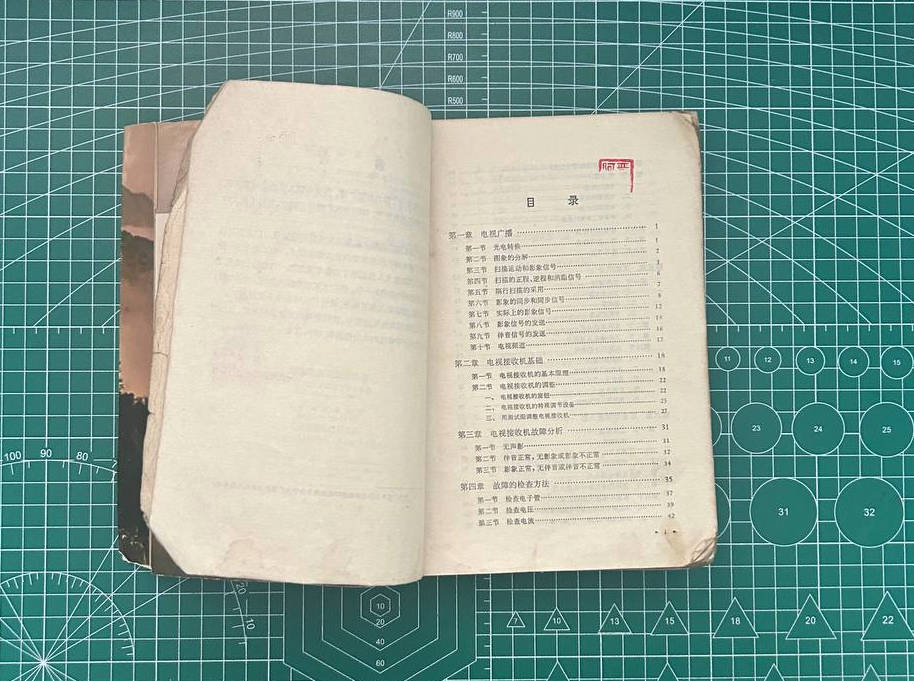 R900
R800
R700
R600
R500
目 录
第一章 电视广播 1
第一节 光电转换 1
第二节 图象的分解 2
第三节 扫描运动和影象信号 3
第四节 扫描的正程、逆程和消隐信号 6
第五节 隔行扫描的采用 7
第六节 影象的同步和同步信号 8
第七节 实际上的影象信号 12
第八节 影象信号的发送
第九节 伴音信号的发送 16
第十节 电视频道 17
第二章 电视接收机基础 18
第一节 电视接收机的基本原理 18
第二节 电视接收机的调整 22
一、电视接收机的旋钮 22
二、电视接收机的特殊调节设备 25
三、用测试图调整电视接收机 27
第三章 电视接收机故障分析 31
第一节 无声影 31
第二节 伴音正常,无影象或影象不正常 32
第三节 影象正常,无伴音或伴音不正常 34
第四章 故障的检查方法 35
第一节 检查电子管 37
第二节 检查电压 39
第三节 检查电流 42
· 1 ·
11 12 13 14 15
23 24 25
100 90 80
31 32
20
10
10
20
40
60
7 10 13 15 18 20 22